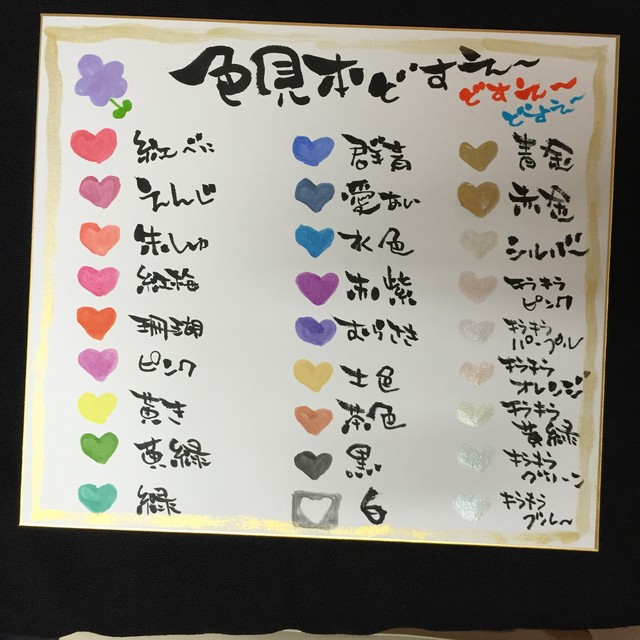 色見本どすえ〜
どすえ〜
どすえ〜
紅べに
えんじ
朱しゅ
ピンク
黄き
黄緑
緑
群青
愛あい
水色
赤紫
むらさき
土色
茶色
黒
白
青金
赤金
シルバー
キラキラ
ピンク
キラキラ
パープル
キラキラ
オレンジ
キラキラ
黄緑
キラキラ
グリーン
キラキラ
ブルー